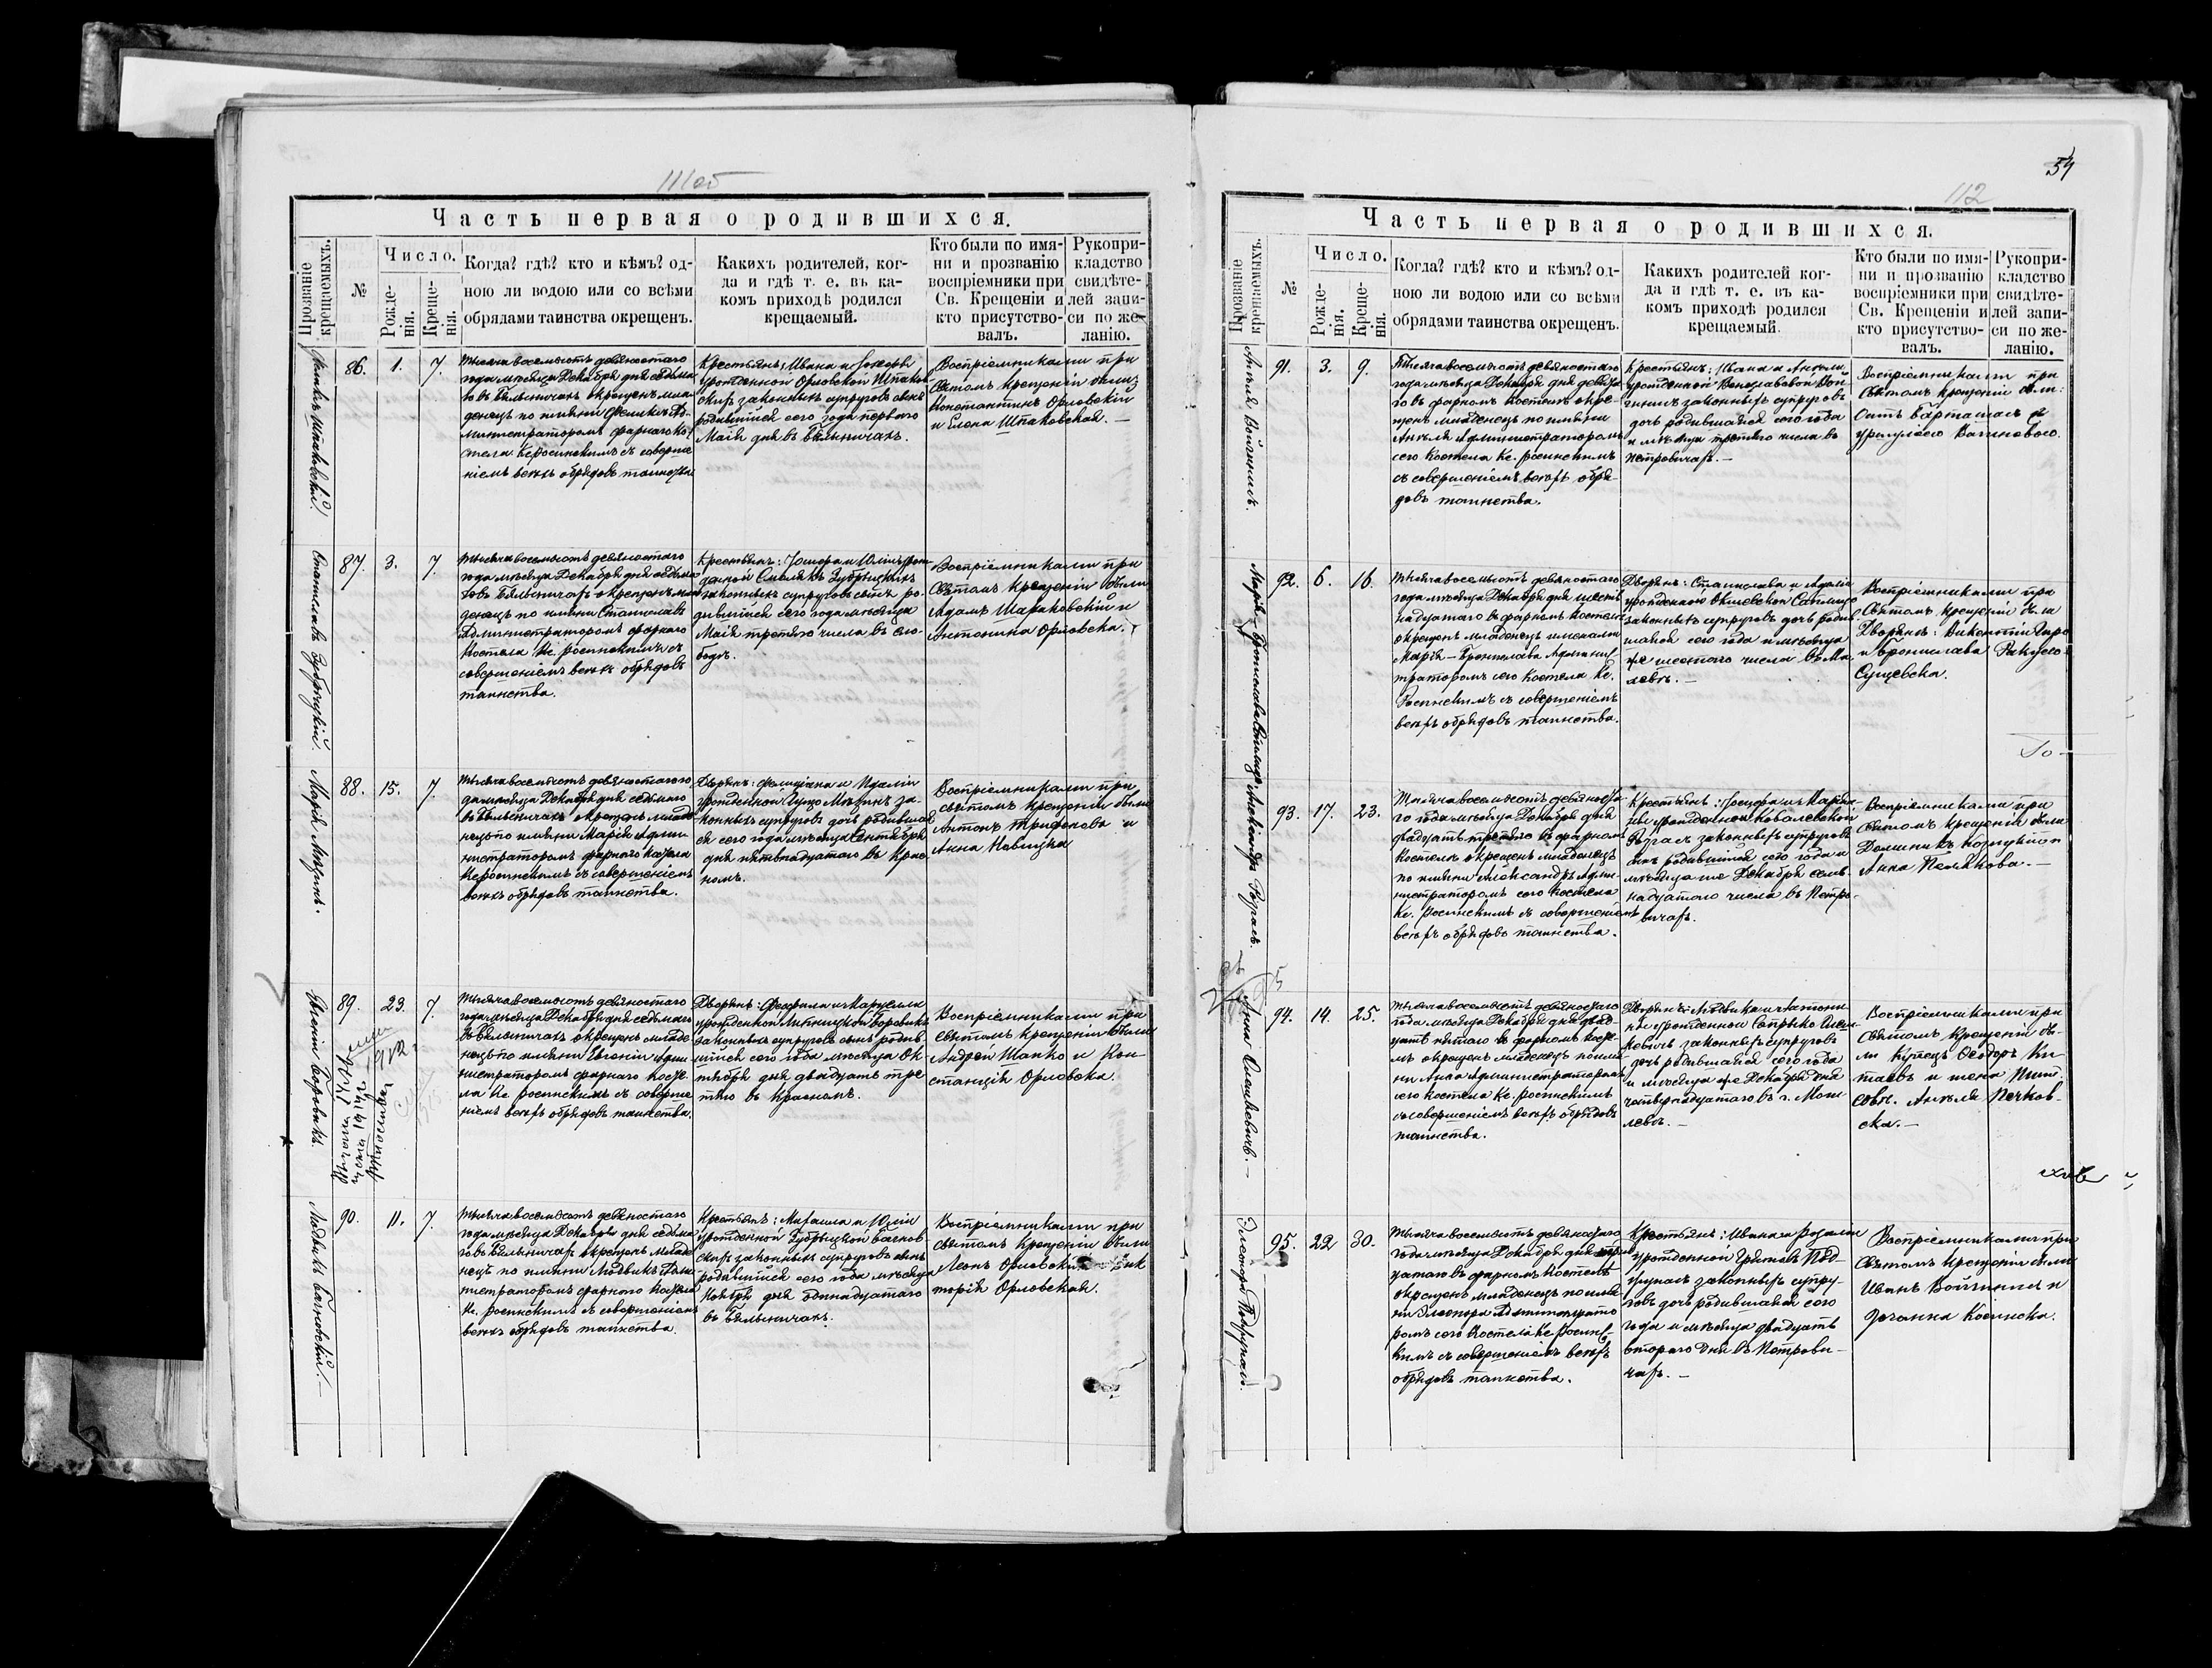 111об
Часть первая о родившихся.
Прозваніе крещаемыхъ.
№
Число.
Рожде-
нія.
Креще-
нія.
Когда? гдѣ? кто и кѣмъ? од-
ною ли водою или со всѣми
обрядами таинства окрещенъ.
Какихъ родителей, ког-
да и гдѣ т. е. въ ка-
комъ приходѣ родился
крещаемый.
Кто были по имя-
ни и прозванію
воспріемники при
Св. Крещеніи и
кто присутство-
валъ.
Рукопри-
кладство
свидѣте-
лей запи-
си по же-
ланію.
Феликсъ Шпаковскій.
86.
1.
7.
Тысяча восемьсотъ девяностаго
года мѣсяца Декабря дня седьма-
го въ Бялыничахъ окрещенъ мла-
денецъ по имяни Феликсъ Ад-
министраторомъ фарнаго Ко-
стела Кс Росинскимъ съ соверше
ніемъ всѣхъ обрядовъ таинства
Крестьянъ: Ивана и Іозефы
урожденной Орловской Шпаков-
скихъ законныхъ супруговъ сынъ
родившійся сего года перваго
Маія дня въ Бялыничахъ.
Воспріемниками при
Святомъ Крещеніи были
Константинъ Орловскій
и Елена Шпаковская. —
Станиславъ Зубрицкій.
87.
3.
7.
Тысяча восемьсотъ девяностаго
года мѣсяца Декабря дня седьма-
го въ Бялыничахъ окрещенъ мла-
денецъ по имяни Станиславъ
Администраторомъ фарнаго
Костела Кс. Росинскимъ съ
совершеніемъ всѣхъ обрядовъ
таинства.
Крестьянъ: Іосифа и Юліи урож-
денной Смолякъ Зубрицкихъ
законныхъ супруговъ сынъ ро-
дившійся сего года мѣсяца
Маія третяго числа въ Сло-
бодѣ.
Воспріемниками при
Святомъ Крещеніи были
Адамъ Шараковскій и
Антонина Орловска.
Марія Мозынь.
88.
15.
7.
Тысяча восемьсотъ девяностаго го-
да мѣсяца Декабря дня седьмаго
въ Бялыничахъ окрещенъ младе-
нецъ по имяни Марія Адми-
нистраторомъ фарнаго Костела
Кс Росинскимъ съ совершеніемъ
всѣхъ обрядовъ таинства.
Дворянъ: Фелиціана и Идаліи
законныхъ супруговъ дочь родившая-
ся сего года мѣсяца Сентября
дня пятнадцатаго въ Крас-
номъ.
Воспріемниками при
святомъ Крещеніи были
Антонъ Трифонова и
Анна Навицка
Евгеній Боровикъ.
89.
23.
7.
1912
Тысяча восемьсотъ девяностаго
года мѣсяца Декабря дня седьмаго
въ Бялыничахъ окрещенъ младе-
нецъ по имяни Евгеній Адми
нистраторомъ фарнаго Косте-
ла Кс Росинскимъ съ соверше
ніемъ всѣхъ обрядовъ таинства.
Дворянъ: Феофила и Марцеллы
урожденной Липницкой Боровикъ
законныхъ супруговъ сынъ родив-
шійся сего года мѣсяца Ок-
тября дня двадцать тре
тяго въ Красномъ.
Воспріемниками при
святомъ Крещеніи были
Андрей Шанко и Кон-
станція Орловска.
Людвикъ Бачковскій. —
90.
11.
7.
Тысяча восемьсотъ девяностаго
года мѣсяца Декабря дня седьма-
го въ Бялыничахъ окрещенъ младе
нецъ по имяни Людвикъ Адми
нистраторомъ фарнаго Костела
Кс. Росинскимъ съ совершеніемъ
всѣхъ обрядовъ таинства.
Крестьянъ: Михаила и Юліи
урожденной Зубрицкой Бачков-
скихъ законныхъ супруговъ сынъ
родившійся сего года мѣсяца
Ноября дня одиннадцатаго
въ Бялыничахъ.
Воспріемниками при
святомъ Крещеніи были
Леонъ Орловскій
торія Орловская.
54
112
Часть первая о родившихся.
Прозваніе крещаемыхъ.
№
Число.
Рожде-
нія.
Креще-
нія.
Когда? гдѣ? кто и кѣмъ? од-
ною ли водою или со всѣми
обрядами таинства окрещенъ.
Какихъ родителей ког-
да и гдѣ т. е. въ ка-
комъ приходѣ родился
крещаемый.
Кто были по имя-
ни и прозванію
воспріемники при
Св. Крещеніи и
кто присутство-
валъ.
Рукопри-
кладство
свидѣте-
лей запи-
си по же-
ланію.
Ангеля Войгинисъ.
91.
3.
9.
Тысяча восемьсотъ девяностаго
года мѣсяца Декабря дня девята-
го въ фарномъ Костелѣ окре-
щенъ младенецъ по имяни
Ангеля Администраторомъ
сего Костела Кс. Росинскимъ
съ совершеніемъ всѣхъ обря-
довъ таинства.
законныхъ супруговъ
дочь родившаяся сего года
и мѣсяца третяго числа въ
Петровичахъ. —
Воспріемниками при
Святомъ Крещеніи были:
92.
6.
16.
Тысяча восемьсотъ девяностаго
года мѣсяца Декабря дня шест-
надцатаго въ фарномъ Костелѣ
окрещенъ младенецъ именами
Марія — Брониславa Админис
траторомъ сего Костела Кс.
Росинскимъ съ совершеніемъ
всѣхъ обрядовъ таинства.
Дворянъ: Станислава и Адели
законныхъ супруговъ дочь родив-
шаяся сего года и мѣсяца
же шестого числа въ Мо
левѣ. —
Воспріемниками при
Святомъ Крещеніи были
Дворяне: Викентій
и Бронислава
Сущевска.
Александръ Рузаль.
93.
17.
23.
Тысяча восемьсотъ девяноста-
го года мѣсяца Декабря дня
двадцать третяго въ фарномъ
Костелѣ окрещенъ младенецъ
по имяни Александръ Адми-
нистраторомъ сего Костела
Кс. Росинскимъ съ совершеніемъ
всѣхъ обрядовъ таинства.
Крестьянъ: Іосифа и Марья-
ны урожденной Ковалевской
Рузаль законныхъ супруговъ
сынъ родившійся сего года и
мѣсяца же Декабря сем-
надцатаго числа въ Петро-
вичахъ.
Воспріемниками при
Святомъ Крещеніи были
Доминикъ
Анна Полякова. —
94.
14.
25.
Тысяча восемьсотъ девяностаго
года мѣсяца Декабря дня двад-
цать пятаго въ фарномъ косте-
лѣ окрещенъ младенецъ по имя-
ни Анна Администраторомъ
сего Костела Кс. Росинскимъ
съ совершеніемъ всѣхъ обрядовъ
таинства.
законныхъ супруговъ
дочь родившаяся сего года
и мѣсяца же Декабря дня
четырнадцатаго въ г. Моги
левѣ. —
Воспріемниками при
Святомъ Крещеніи бы-
ли Купецъ Ѳеодоръ Ки-
таевъ и жена Тит.
Совѣт. Ангеля Печков-
ска. —
95.
22
30.
Тысяча восемьсотъ девяностаго
года мѣсяца Декабря дня трид
цатаго въ фарномъ Костелѣ
окрещенъ младенецъ по имя
ни Элеонора Администрато
ромъ сего Костела Кс Росинс-
кимъ съ совершеніемъ всѣхъ
обрядовъ таинства.
Крестьянъ: Ивана и Розаліи
законныхъ супру-
говъ дочь родившаяся сего
года и мѣсяца двадцать
втораго дня въ Петрови-
чахъ. —
Воспріемниками при
Святомъ Крещеніи были
Иванъ Войгинисъ и
Іоганна Косинска.